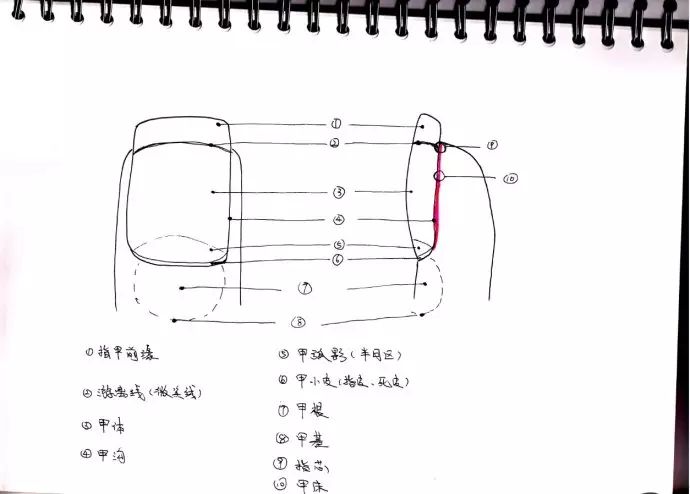 ①
②
③
④
⑤
⑥
⑦
⑧
⑨
⑩
①指甲前缘
②游离线(微笑线)
③甲体
④甲沟
⑤甲弧影(半月区)
⑥甲小皮(指皮、死皮)
⑦甲根
⑧甲基
⑨指芯
⑩甲床